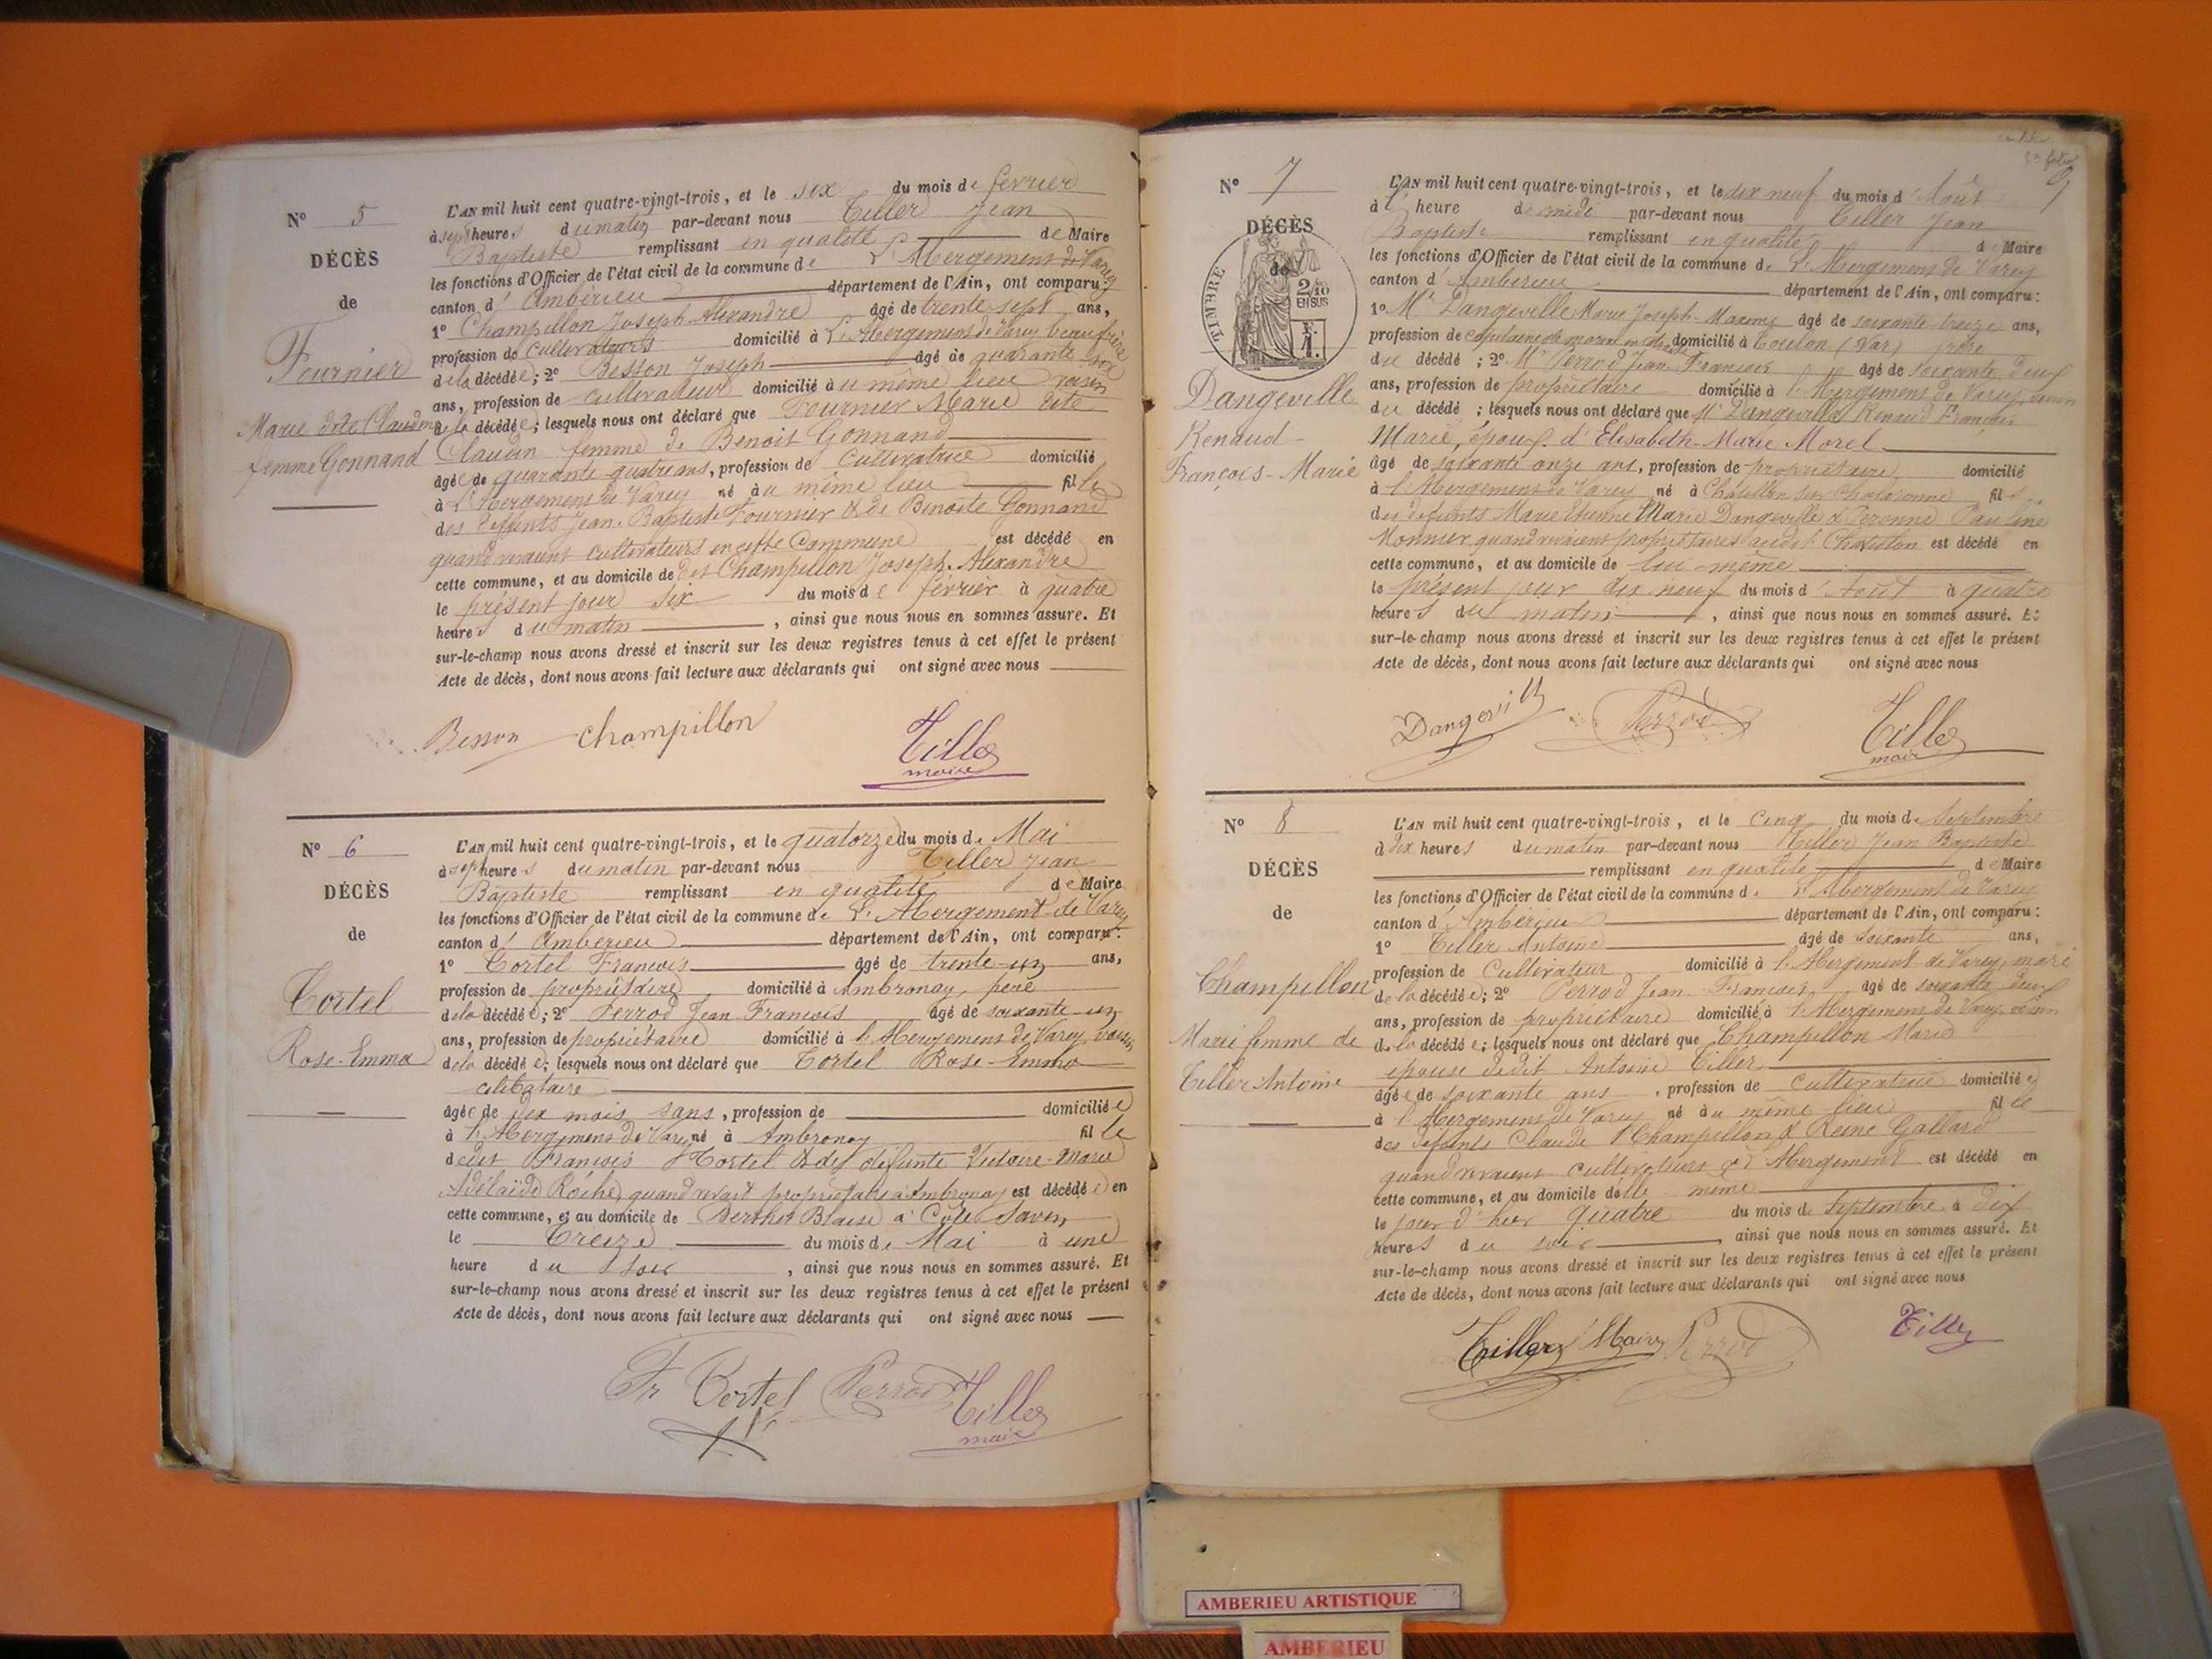 N° 5
DÉCÈS
de
Fournier
Marie dite Claudine
femme Gonnand
L'AN mil huit cent quatre-vingt-trois, et le six du mois de fevrier
à sept heures du matin par-devant nous Tiller Jean
Baptiste remplissant en qualité de Maire
les fonctions d'Officier de l'état civil de la commune de L'Abergement de Varey
canton d'Ambérieu département de l'Ain, ont comparu:
1° Champillon Joseph Alexandre âgé de trente-sept ans,
profession de cultivateurs domicilié à L'Abergement de Varey beau frère
de la décédée; 2° Besson Joseph âgé de quarante six
ans, profession de cultivateur domicilié au même lieu voisin
de la décédée; lesquels nous ont déclaré que Fournier Marie dite
Claudin femme de Benoit Gonnand
âgée de quarante quatre ans, profession de cultivatrice domicilié
à L'Abergement de Varey né au même lieu fille
des défunts Jean-Baptiste Fournier & de Benoîte Gonnand
quand vivaient cultivateurs en cette Commune est décédé en
cette commune, et au domicile de dit Champillon Joseph-Alexandre
le présent jour six du mois de février à quatre
heures du matin, ainsi que nous nous en sommes assuré. Et
sur-le-champ nous avons dressé et inscrit sur les deux registres tenus à cet effet le présent
Acte de décès, dont nous avons fait lecture aux déclarants qui ont signé avec nous
Besson Champillon Tiller
maire
N° 6
DÉCÈS
de
Tortel
Rose-Emma
L'AN mil huit cent quatre-vingt-trois, et le quatorze du mois de Mai
à sept heures du matin par-devant nous Tiller Jean
Baptiste remplissant en qualité de Maire
les fonctions d'Officier de l'état civil de la commune de L'Abergement de Varey
canton d'Ambérieu département de l'Ain, ont comparu:
1° Tortel François âgé de trente-un ans,
profession de propriétaire domicilié à Ambronay, père
de la décédée; 2° Perrod Jean François âgé de soixante-un
ans, profession de propriétaire domicilié à l'Abergement de Varey, voisin
de la décédée; lesquels nous ont déclaré que Tortel Rose-Emma
célibataire
âgée de dix mois sans, profession de domiciliée
à l'Abergement de Varey né à Ambronay fille
de François Tortel & de défunte Victoire-Marie
Adélaïde Roche, quand vivait propriétaire à Ambronay est décédée en
cette commune, et au domicile de Berthet Blaise à Côte Savin
le Treize du mois de Mai à une
heure du soir, ainsi que nous nous en sommes assuré. Et
sur-le-champ nous avons dressé et inscrit sur les deux registres tenus à cet effet le présent
Acte de décès, dont nous avons fait lecture aux déclarants qui ont signé avec nous
Fr Tortel Perrod Tiller
maire
N° 7
DÉCÈS
de
TIMBRE
2/10
EN SUS
Dangeville
Renaud-
François-Marie
L'AN mil huit cent quatre-vingt-trois, et le dix neuf du mois d'Août
à heure de midi par-devant nous Tiller Jean
Baptiste remplissant en qualité de Maire
les fonctions d'Officier de l'état civil de la commune de L'Abergement de Varey
canton d'Ambérieu département de l'Ain, ont comparu:
1° Mr Dangeville Marie Joseph-Maxime âgé de soixante-treize ans,
profession de capitaine de marine en retraite domicilié à Toulon (Var) frère
du décédé; 2° Mr Perrod Jean François âgé de soixante deux
ans, profession de propriétaire domicilié à l'Abergement de Varey, voisin
du décédé; lesquels nous ont déclaré que Mr Dangeville Renaud François
Marie, époux d'Elisabeth-Marie Morel
âgé de soixante onze ans, profession de propriétaire domicilié
à l'Abergement de Varey né à Châtillon sur Chalaronne fils
des défunts Marie Etienne Marie Dangeville & Peronne Pauline
Monnier quand vivaient propriétaires audit Châtillon est décédé en
cette commune, et au domicile de lui-même
le présent jour dix neuf du mois d'Août à quatre
heures du matin, ainsi que nous nous en sommes assuré. Et
sur-le-champ nous avons dressé et inscrit sur les deux registres tenus à cet effet le présent
Acte de décès, dont nous avons fait lecture aux déclarants qui ont signé avec nous
Dangeville Perrod Tiller
maire
N° 8
DÉCÈS
de
Champillon
Marie femme de
Tiller Antoine
L'AN mil huit cent quatre-vingt-trois, et le cinq du mois de Septembre
à dix heures du matin par-devant nous Tiller Jean Baptiste
remplissant en qualité de Maire
les fonctions d'Officier de l'état civil de la commune de L'Abergement de Varey
canton d'Ambérieu département de l'Ain, ont comparu:
1° Tiller Antoine âgé de soixante ans,
profession de Cultivateur domicilié à l'Abergement de Varey, mari
de la décédée; 2° Perrod Jean-François âgé de soixante deux
ans, profession de propriétaire domicilié à l'Abergement de Varey, voisin
de la décédée; lesquels nous ont déclaré que Champillon Marie
épouse dedit Antoine Tiller
âgée de soixante ans, profession de cultivatrice domiciliée
à l'Abergement de Varey né au même lieu fille
des défunts Claude Champillon & Reine Gallard
quand vivaient cultivateurs à L'Abergement est décédé en
cette commune, et au domicile delle même
le jour d'hier quatre du mois de Septembre à dix
heures du soir, ainsi que nous nous en sommes assuré. Et
sur-le-champ nous avons dressé et inscrit sur les deux registres tenus à cet effet le présent
Acte de décès, dont nous avons fait lecture aux déclarants qui ont signé avec nous
Tiller Maire Perrod Tiller
AMBERIEU ARTISTIQUE
AMBERIEU